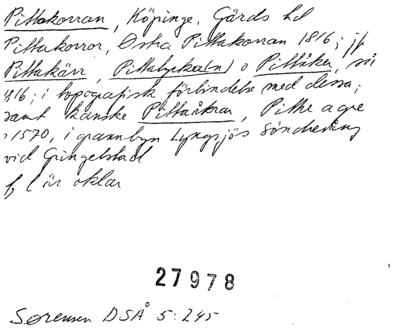 Pittakorran, Köpinge, Gärds hd
Pittakorror, Östra Pittakorran 1816; jfr
Pittakärr, Pittalycka(n) o Pittåker, så
1816; i topografisk förbindelse med dessa;
samt kanske Pittaåkran, Pitke agre
1570, i grannbyn Lyngsjös Söndreving
vid Gringelstad
f l är oklar
27978
Sørensen DSÅ 5:245